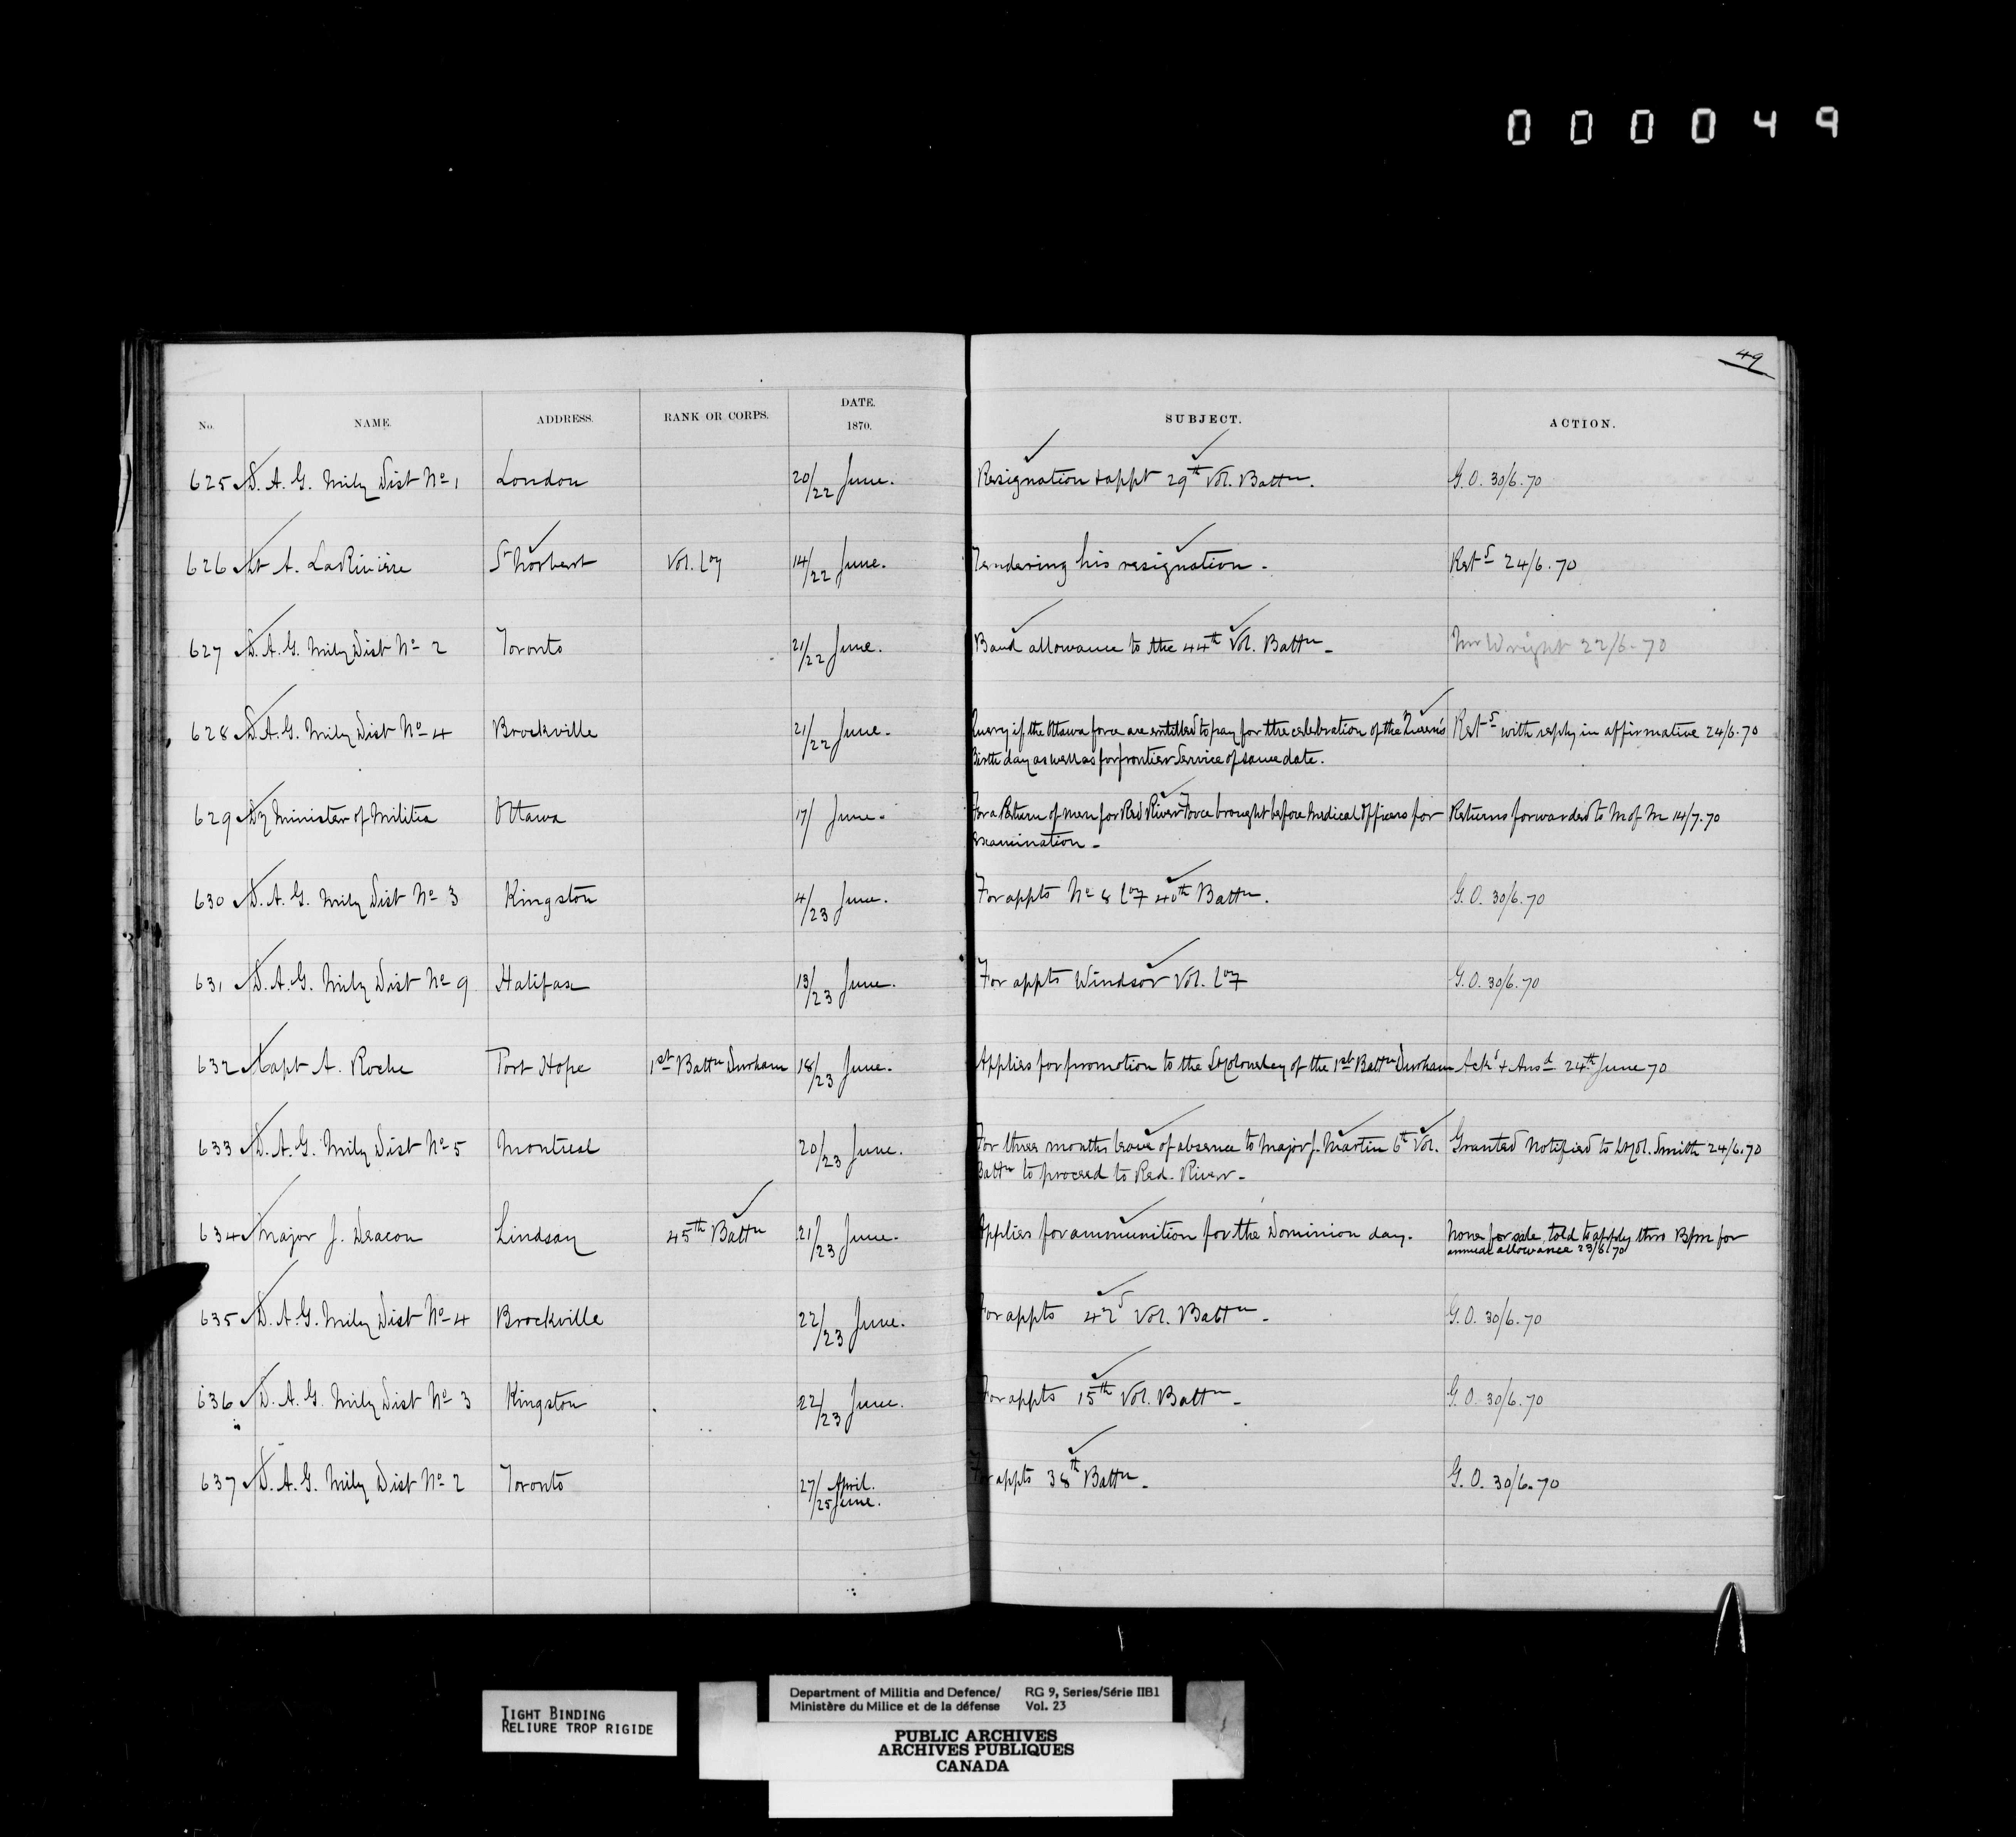 000049
49
No. NAME. ADDRESS. RANK OR CORPS. DATE. 1870. SUBJECT. ACTION.
625 D. A. G. Mily Dist No 1 London 20/22 June. Resignation & appt 29th Vol. Battn. G. O. 30/6.70
626 Lt A. LaRivière St Norbert Vol. Coy 14/22 June. Tendering his resignation. Retd 24/6.70
627 D. A. G. Mily Dist No 2 Toronto 21/22 June. Band allowance to the 44th Vol. Battn. Mr Wright 22/6.70
628 D. A. G. Mily Dist No 4 Brockville 21/22 June. Query if the Ottawa force are entitled to pay for the celebration of the Queen's Retd with reply in affirmative 24/6.70
Birth day as well as for frontier Service of same date.
629 Dy Minister of Militia Ottawa 17/ June. For a Return of men for Red River Force brought before Medical Officers for Returns forwarded to M of M 14/7.70
examination.
630 D. A. G. Mily Dist No 3 Kingston 4/23 June. For appts No 8 Coy 40th Battn. G. O. 30/6.70
631 D. A. G. Mily Dist No 9 Halifax 13/23 June. For appts Windsor Vol. Coy G. O. 30/6.70
632 Capt A. Roche Port Hope 1st Battn Durham 18/23 June. Applies for promotion to the Lt Colonelcy of the 1st Battn Durham Ackd & Ansd 24th June 70
633 D. A. G. Mily Dist No 5 Montreal 20/23 June. For three months leave of absence to Major J. Martin 6th Vol. Granted Notified to Lt Col. Smith 24/6.70
Battn to proceed to Red River.
634 Major J. Deacon Lindsay 45th Battn 21/23 June. Applies for ammunition for the Dominion day. None for sale, told to apply thro B
annual allowance 23/6.70
635 D. A. G. Mily Dist No 4 Brockville 22/23 June. For appts 42d Vol. Battn. G. O. 30/6.70
636 D. A. G. Mily Dist No 3 Kingston 22/23 June. For appts 15th Vol. Battn. G. O. 30/6.70
637 D. A. G. Mily Dist No 2 Toronto 27/ April. For appts 38th Battn. G. O. 30/6.70
/25 June.
TIGHT BINDING
RELIURE TROP RIGIDE
Department of Militia and Defence/ RG 9, Series/Série IIB1
Ministère du Milice et de la défense Vol. 23
PUBLIC ARCHIVES
ARCHIVES PUBLIQUES
CANADA